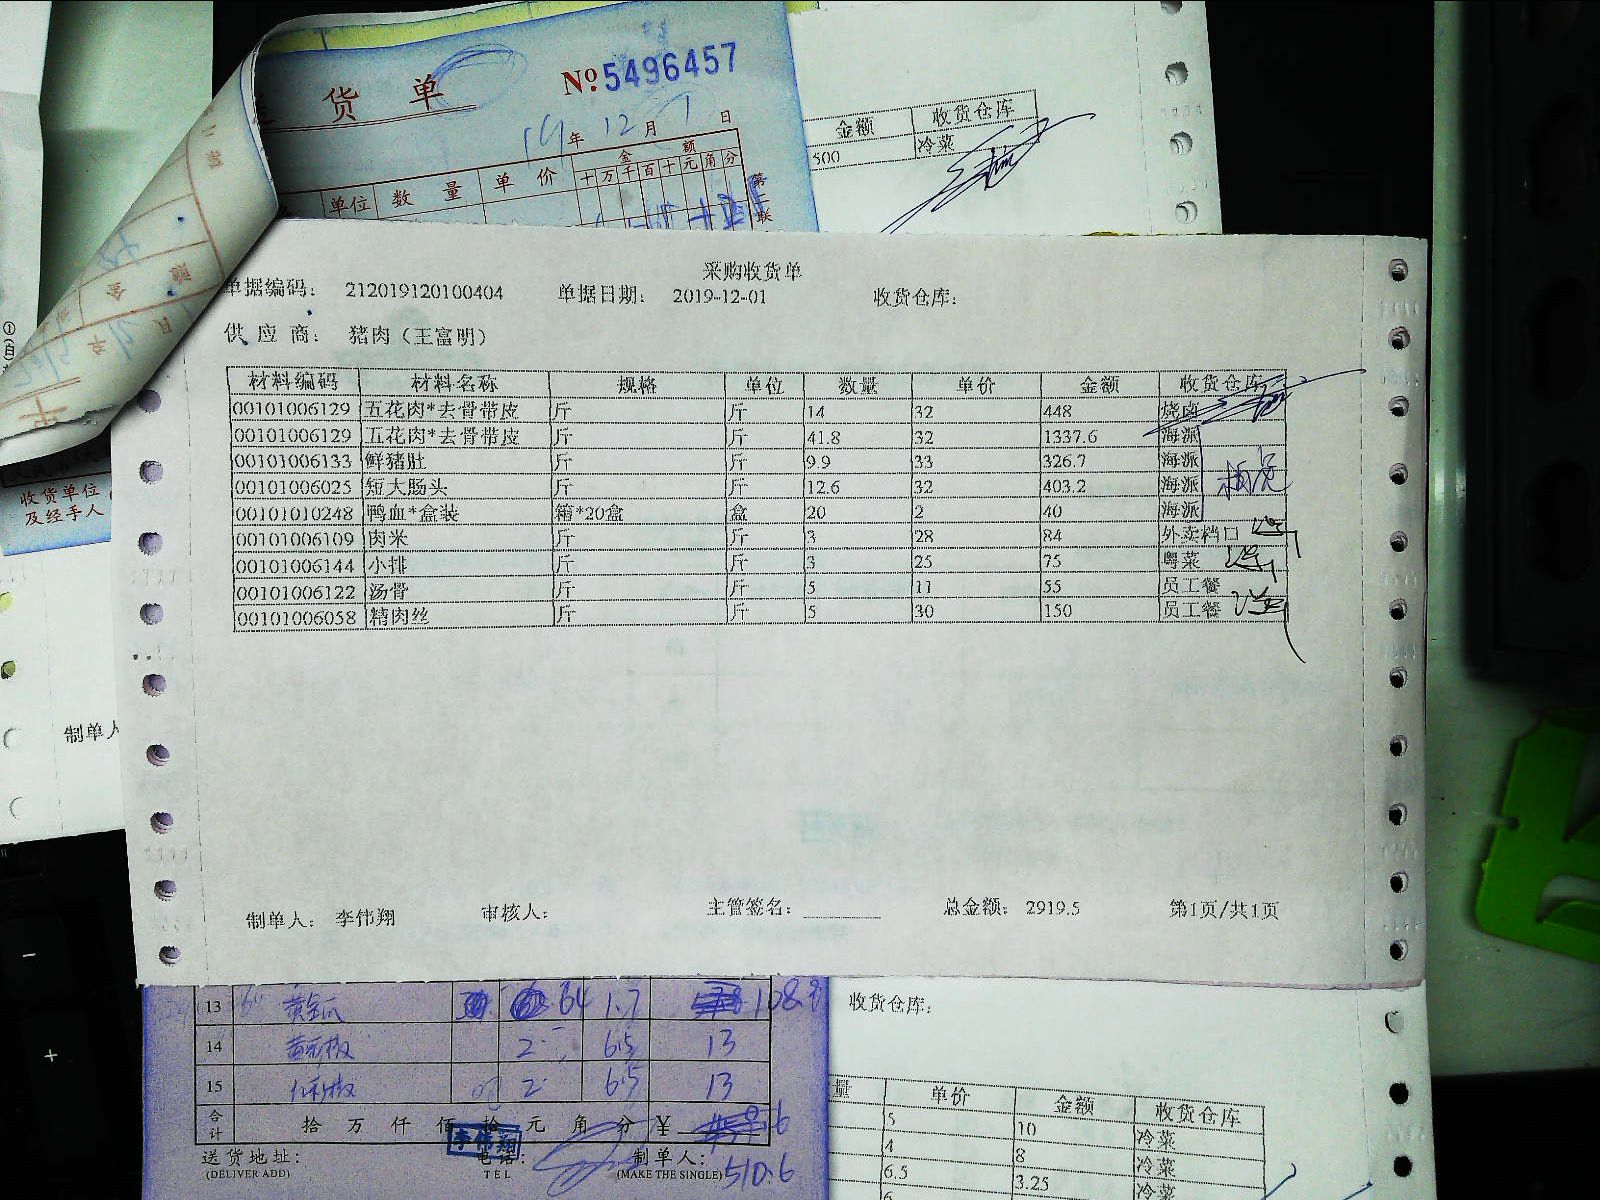 货 单 № 5496457
19 年 12 月 1 日
单位 数 量 单 价 金 额
十 万 千 百 十 元 角 分
第 二 联
金额 收货仓库
500 冷菜
采购收货单
单据编码： 212019120100404 单据日期： 2019-12-01 收货仓库：
供 应 商： 猪肉（王富明）
材料编码 材料名称 规格 单位 数量 单价 金额 收货仓库
00101006129 五花肉*去骨带皮 斤 斤 14 32 448 烧卤
00101006129 五花肉*去骨带皮 斤 斤 41.8 32 1337.6 海派
00101006133 鲜猪肚 斤 斤 9.9 33 326.7 海派
00101006025 短大肠头 斤 斤 12.6 32 403.2 海派
00101010248 鸭血*盒装 箱*20盒 盒 20 2 40 海派
00101006109 肉米 斤 斤 3 28 84 外卖档口
00101006144 小排 斤 斤 3 25 75 粤菜
00101006122 汤骨 斤 斤 5 11 55 员工餐
00101006058 精肉丝 斤 斤 5 30 150 员工餐
制单人： 李伟翔 审核人： 主管签名： 总金额： 2919.5 第1页/共1页
收货单位
及经手人
制单人
13 黄金瓜 64 1.7 108.8
14 2 6.5 13
15 2 6.5 13
合计 拾 万 仟 佰 拾 元 角 分 ¥
李伟翔
送货地址： 电话： 制单人： 510.6
(DELIVER ADD) TEL (MAKE THE SINGLE)
收货仓库：
量 单价 金额 收货仓库
5 10 冷菜
4 8 冷菜
6.5 3.25 冷菜